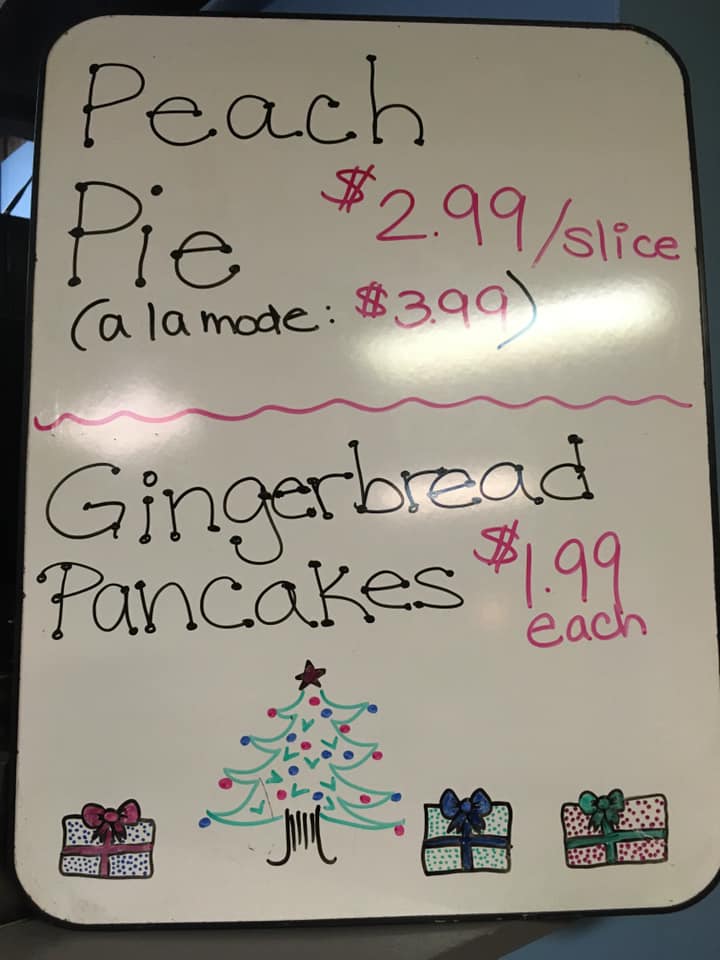 Peach
Pie $2.99/slice
(a la mode: $3.99)
Gingerbread
Pancakes $1.99
each